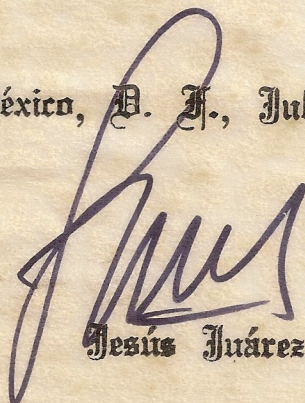 éxico, D. F., Jul
Jesús Juárez